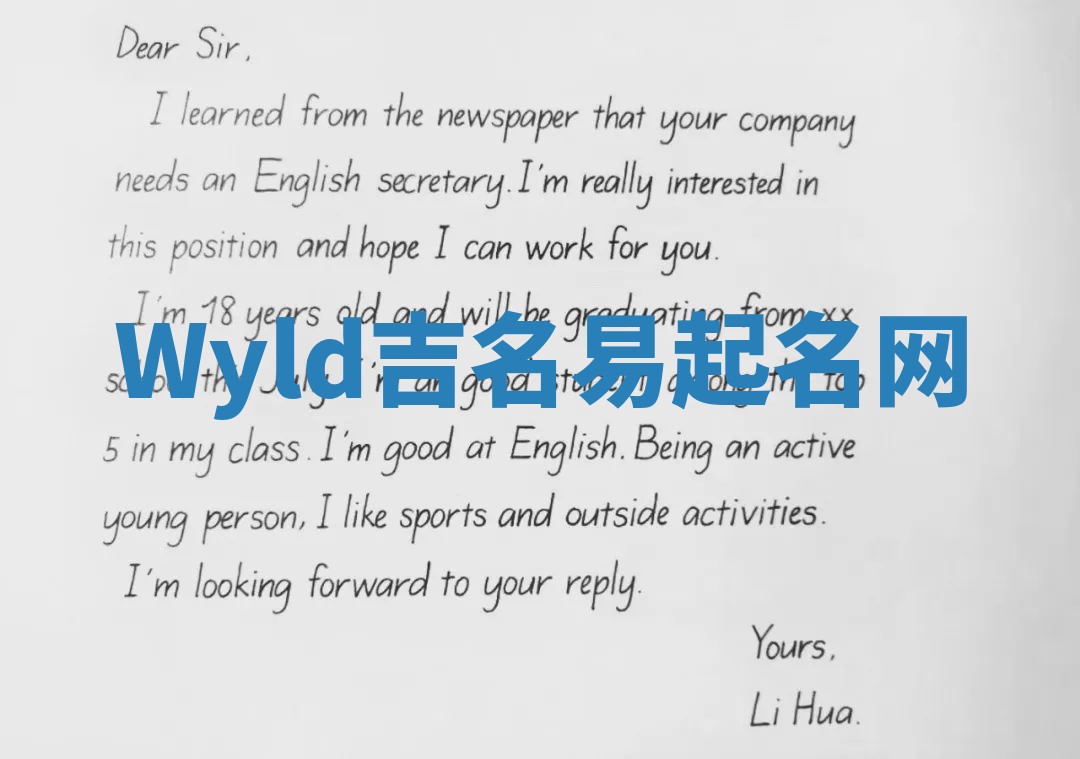 Dear Sir,
I learned from the newspaper that your company
needs an English secretary. I'm really interested in
this position and hope I can work for you.
I'm 18 years old and will be graduating from xx
Wyld吉名易起名网
July. I'm good student among the top
5 in my class. I'm good at English. Being an active
young person, I like sports and outside activities.
I'm looking forward to your reply.
Yours,
Li Hua.